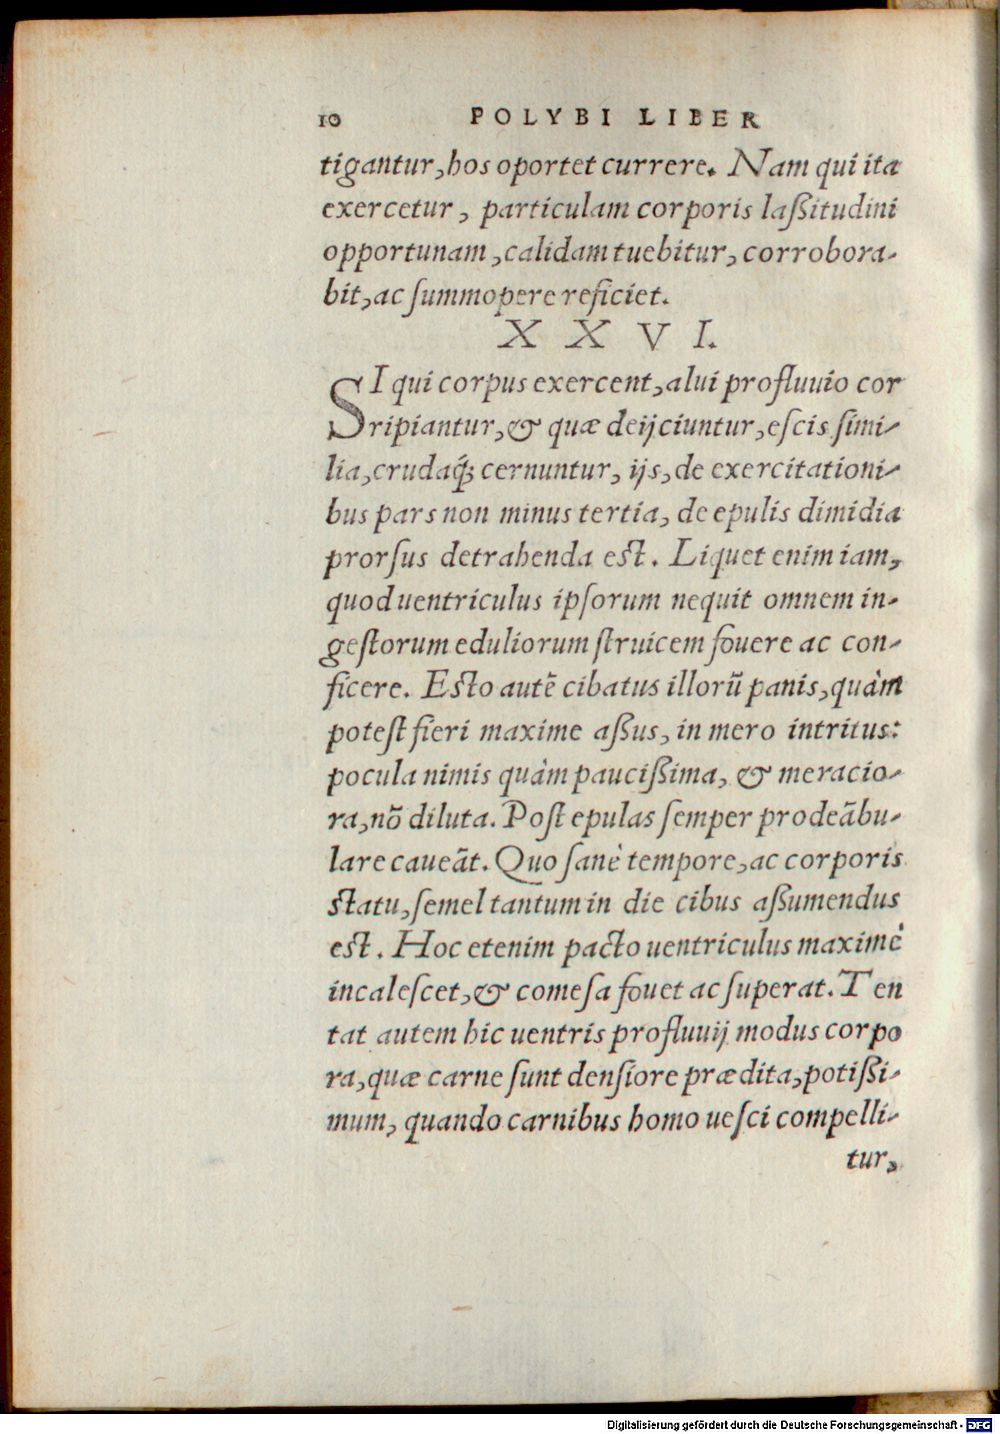 10 POLYBI LIBER
tigantur, hos oportet currere. Nam qui ita
exercetur, particulam corporis laßitudini
opportunam, calidam tuebitur, corrobora-
bit, ac ſummopere reficiet.
XXVI.
SI qui corpus exercent, alui profluuio cor
ripiantur, & quæ deijciuntur, eſcis ſimi-
lia, crudaq́; cernuntur, ijs, de exercitationi-
bus pars non minus tertia, de epulis dimidia
prorſus detrahenda eſt. Liquet enim iam,
quod uentriculus ipſorum nequit omnem in-
geſtorum eduliorum ſtruicem fouere ac con-
ficere. Eſto autē cibatus illorū panis, quàm
poteſt fieri maxime aßus, in mero intritus:
pocula nimis quàm paucißima, & meracio-
ra, nō diluta. Poſt epulas ſemper prodeābu-
lare caueāt. Quo ſanè tempore, ac corporis
ſtatu, ſemel tantum in die cibus aßumendus
eſt. Hoc etenim pacto uentriculus maximè
incaleſcet, & comeſa fouet ac ſuperat. Ten
tat autem hic uentris profluuij modus corpo
ra, quæ carne ſunt denſiore prædita, potißi-
mum, quando carnibus homo ueſci compelli-
tur,
Digitalisierung gefördert durch die Deutsche Forschungsgemeinschaft - DFG